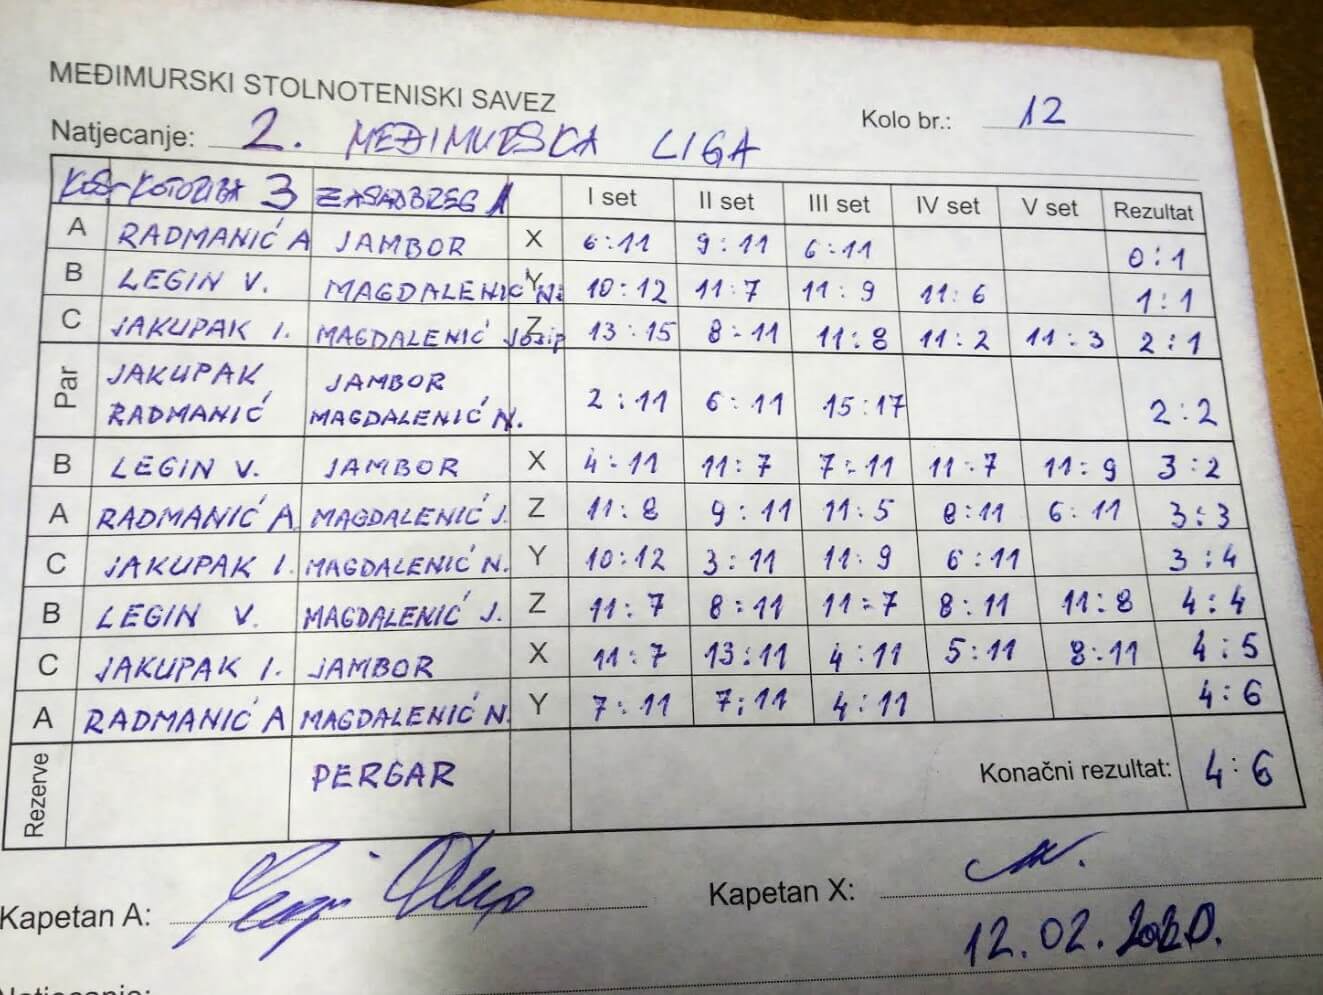 MEĐIMURSKI STOLNOTENISKI SAVEZ
Natjecanje: 2. MEĐIMURSKA LIGA Kolo br.: 12
KOTORIBA 3 ZASADBREG 1 I set II set III set IV set V set Rezultat
A RADMANIĆ A JAMBOR X 6:11 9:11 6:11 0:1
B LEGIN V. MAGDALENIĆ N. Y 10:12 11:7 11:9 11:6 1:1
C JAKUPAK I. MAGDALENIĆ Josip Z 13:15 8:11 11:8 11:2 11:3 2:1
Par JAKUPAK RADMANIĆ JAMBOR MAGDALENIĆ N. 2:11 6:11 15:17 2:2
B LEGIN V. JAMBOR X 4:11 11:7 7:11 11:7 11:9 3:2
A RADMANIĆ A. MAGDALENIĆ J. Z 11:8 9:11 11:5 8:11 6:11 3:3
C JAKUPAK I. MAGDALENIĆ N. Y 10:12 3:11 11:9 6:11 3:4
B LEGIN V. MAGDALENIĆ J. Z 11:7 8:11 11:7 8:11 11:8 4:4
C JAKUPAK I. JAMBOR X 11:7 13:11 4:11 5:11 8:11 4:5
A RADMANIĆ A MAGDALENIĆ N. Y 7:11 7:11 4:11 4:6
Rezerve PERGAR Konačni rezultat: 4:6
Kapetan A: Kapetan X:
12.02.2020.
Natjecanje: